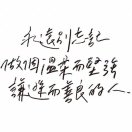 永遠別忘記
做個溫柔而堅強
謙遜而善良的人.